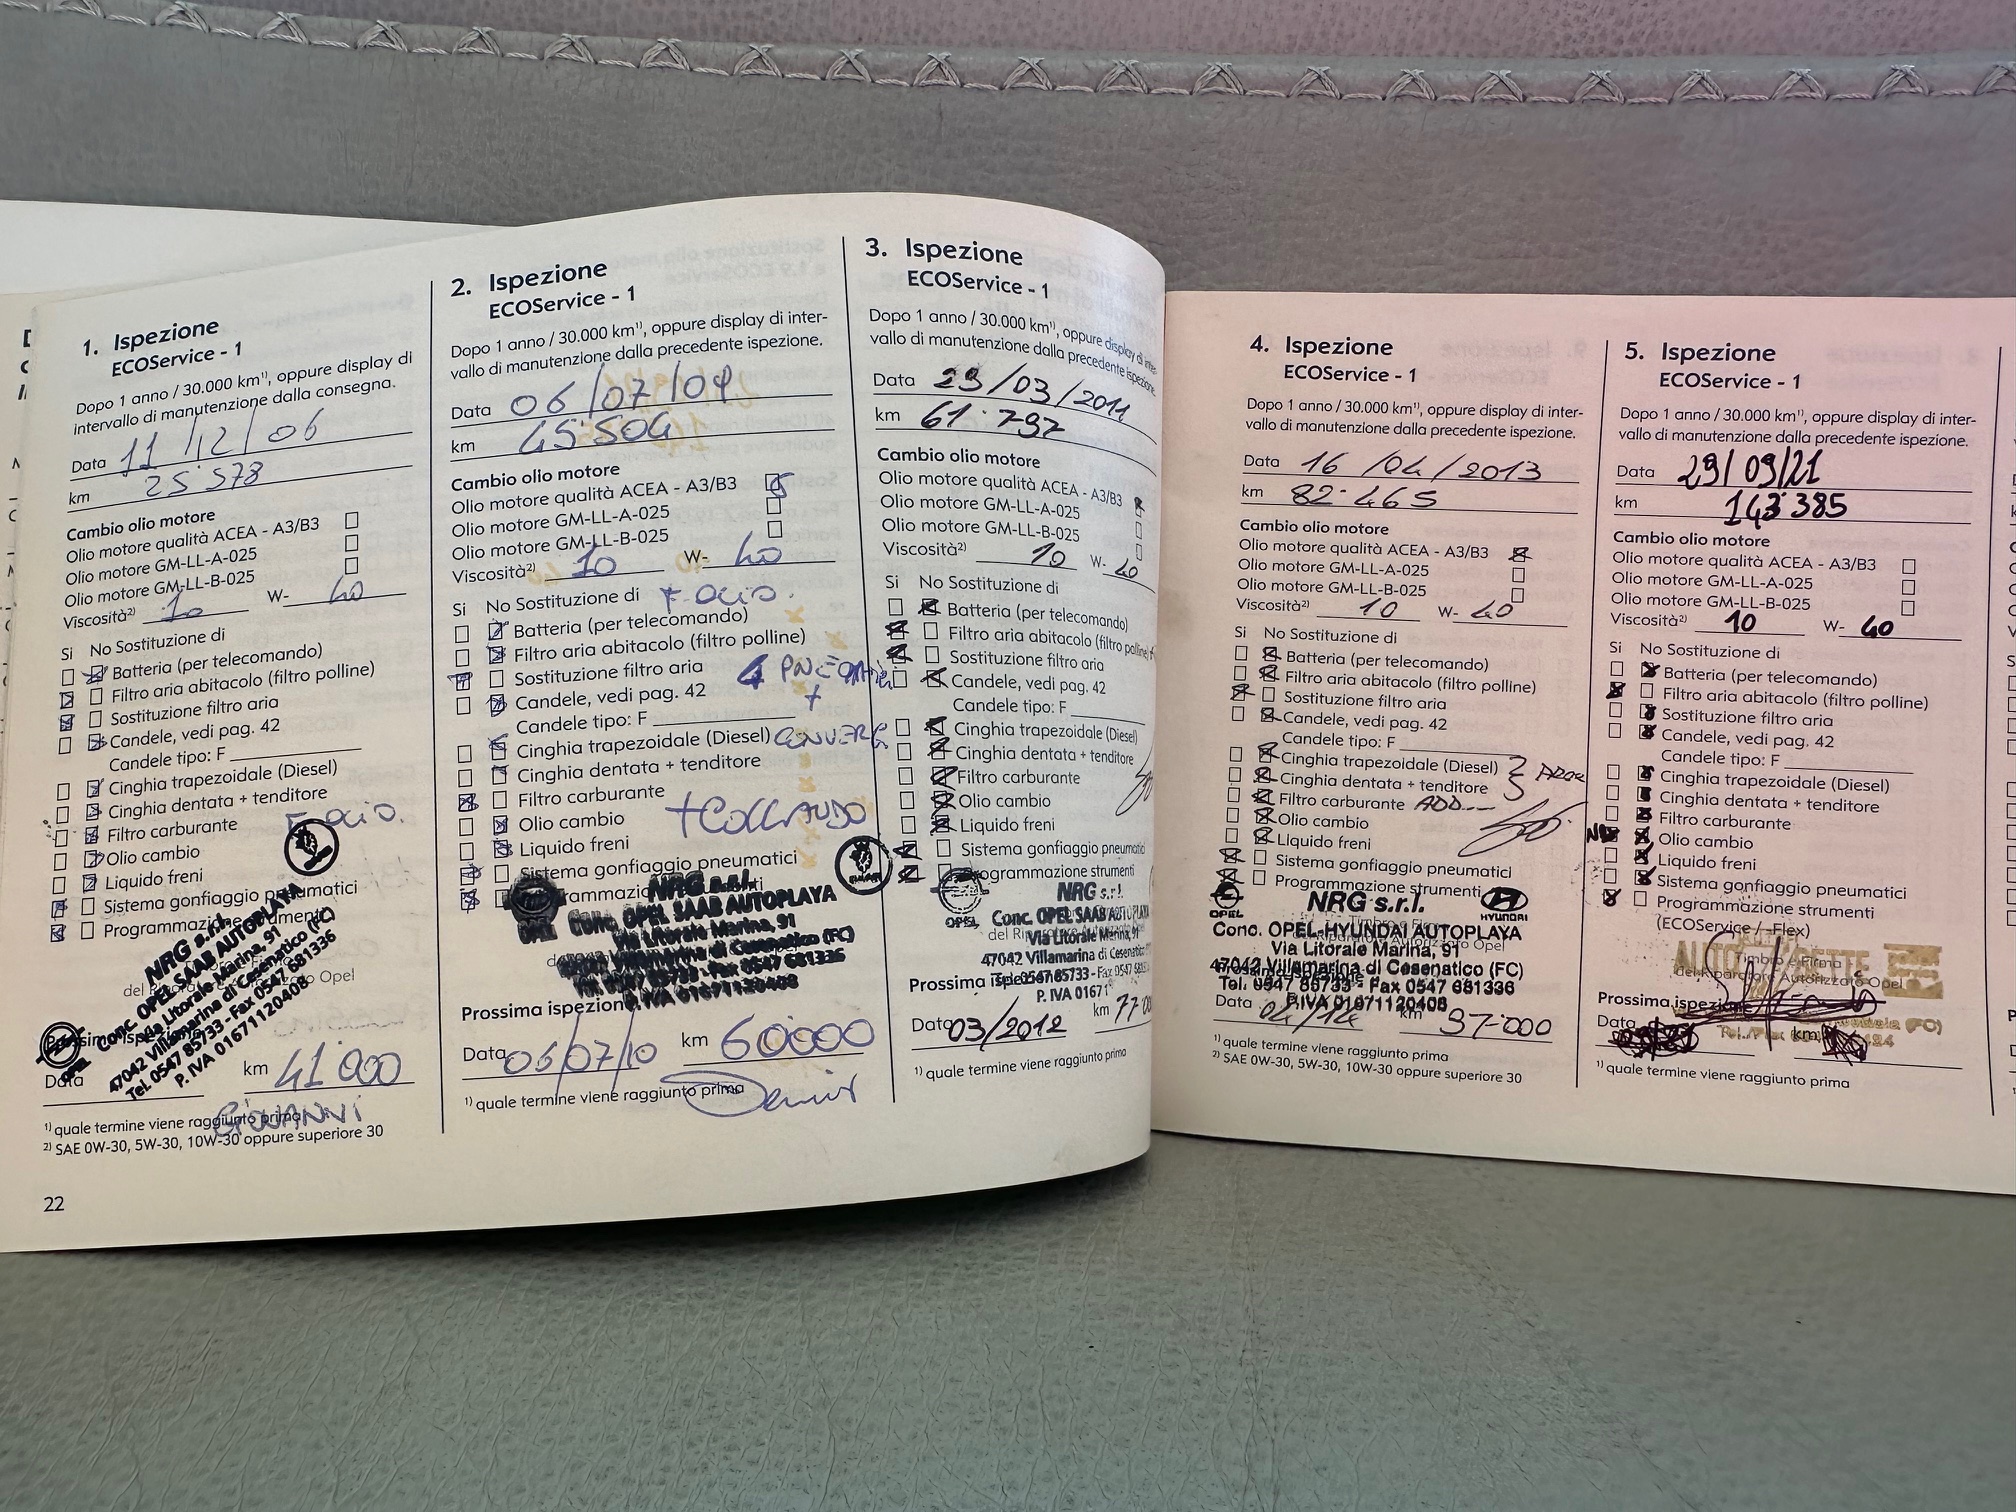 1. Ispezione
ECOService - 1
Dopo 1 anno / 30.000 km¹⁾, oppure display di
intervallo di manutenzione dalla consegna.
Data 11/12/06
km 25'578
Cambio olio motore
Olio motore qualità ACEA - A3/B3
Olio motore GM-LL-A-025
Olio motore GM-LL-B-025
Viscosità²⁾ 10 W- 40
Si No Sostituzione di
Batteria (per telecomando)
Filtro aria abitacolo (filtro polline)
Sostituzione filtro aria
Candele, vedi pag. 42
Candele tipo: F
Cinghia trapezoidale (Diesel)
Cinghia dentata + tenditore
Filtro carburante
Olio cambio
Liquido freni
Sistema gonfiaggio pneumatici
Programmazione strumenti
NRG s.r.l.
Conc. OPEL SAAB AUTOPLAYA
Via Litorale Marina, 91
47042 Villamarina di Cesenatico (FC)
Tel. 0547 85733 - Fax 0547 681336
P. IVA 01671120408
Prossima ispezione
Data km 41'000
GIOVANNI
¹⁾ quale termine viene raggiunto prima
²⁾ SAE 0W-30, 5W-30, 10W-30 oppure superiore 30
22
2. Ispezione
ECOService - 1
Dopo 1 anno / 30.000 km¹⁾, oppure display di inter-
vallo di manutenzione dalla precedente ispezione.
Data 06/07/09
km 45'504
Cambio olio motore
Olio motore qualità ACEA - A3/B3
Olio motore GM-LL-A-025
Olio motore GM-LL-B-025
Viscosità²⁾ 10 W- 40
Si No Sostituzione di
Batteria (per telecomando)
Filtro aria abitacolo (filtro polline)
Sostituzione filtro aria 4
Candele, vedi pag. 42 +
Candele tipo: F
Cinghia trapezoidale (Diesel)
Cinghia dentata + tenditore
Filtro carburante
Olio cambio + COLLAUDO
Liquido freni
Sistema gonfiaggio pneumatici
NRG s.r.l.
Conc. OPEL SAAB AUTOPLAYA
Via Litorale Marina, 91
47042 Villamarina di Cesenatico (FC)
Tel. 0547 85733 - Fax 0547 681336
P. IVA 01671120408
Prossima ispezione
Data 06/07/10 km 60000
¹⁾ quale termine viene raggiunto prima
3. Ispezione
ECOService - 1
Dopo 1 anno / 30.000 km¹⁾, oppure display di inter-
vallo di manutenzione dalla precedente ispezione.
Data 29/03/2011
km 61'797
Cambio olio motore
Olio motore qualità ACEA - A3/B3
Olio motore GM-LL-A-025
Olio motore GM-LL-B-025
Viscosità²⁾ 10 W- 40
Si No Sostituzione di
Batteria (per telecomando)
Filtro aria abitacolo (filtro polline)
Sostituzione filtro aria
Candele, vedi pag. 42
Candele tipo: F
Cinghia trapezoidale (Diesel)
Cinghia dentata + tenditore
Filtro carburante
Olio cambio
Liquido freni
Sistema gonfiaggio pneumatici
Programmazione strumenti
NRG s.r.l.
OPEL Conc. OPEL SAAB AUTOPLAYA
Via Litorale Marina, 91
47042 Villamarina di Cesenatico (FC)
Tel. 0547 85733 - Fax 0547
P. IVA 01671
Prossima
Data 03/2012 km
¹⁾ quale termine viene raggiunto prima
4. Ispezione
ECOService - 1
Dopo 1 anno / 30.000 km¹⁾, oppure display di inter-
vallo di manutenzione dalla precedente ispezione.
Data 16/04/2013
km 82'465
Cambio olio motore
Olio motore qualità ACEA - A3/B3
Olio motore GM-LL-A-025
Olio motore GM-LL-B-025
Viscosità²⁾ 10 W- 40
Si No Sostituzione di
Batteria (per telecomando)
Filtro aria abitacolo (filtro polline)
Sostituzione filtro aria
Candele, vedi pag. 42
Candele tipo: F
Cinghia trapezoidale (Diesel)
Cinghia dentata + tenditore
Filtro carburante ADD
Olio cambio
Liquido freni
Sistema gonfiaggio pneumatici
Programmazione strumenti
OPEL NRG s.r.l. HYUNDAI
Conc. OPEL-HYUNDAI AUTOPLAYA
Via Litorale Marina, 91
47042 Villamarina di Cesenatico (FC)
Tel. 0547 85733 - Fax 0547 681336
P.IVA 01671120408
Data 04/14 km 97'000
¹⁾ quale termine viene raggiunto prima
²⁾ SAE 0W-30, 5W-30, 10W-30 oppure superiore 30
5. Ispezione
ECOService - 1
Dopo 1 anno / 30.000 km¹⁾, oppure display di inter-
vallo di manutenzione dalla precedente ispezione.
Data 29/09/21
km 143'385
Cambio olio motore
Olio motore qualità ACEA - A3/B3
Olio motore GM-LL-A-025
Olio motore GM-LL-B-025
Viscosità²⁾ 10 W- 40
Si No Sostituzione di
Batteria (per telecomando)
Filtro aria abitacolo (filtro polline)
Sostituzione filtro aria
Candele, vedi pag. 42
Candele tipo: F
Cinghia trapezoidale (Diesel)
Cinghia dentata + tenditore
Filtro carburante
Olio cambio
Liquido freni
Sistema gonfiaggio pneumatici
Programmazione strumenti
(ECOService / -Flex)
Timbro e Firma
del Riparatore Autorizzato Opel
Prossima ispezione
Data km
¹⁾ quale termine viene raggiunto prima